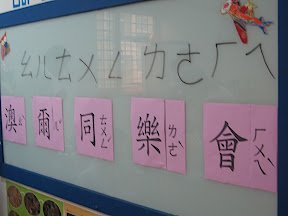 ㄠㄦㄊㄨㄥ ㄌㄜㄏㄟ
澳ㄠˋ 爾ㄦˇ 同ㄊㄨㄥˊ 樂ㄌㄜˋ 會ㄏㄨㄟˋ